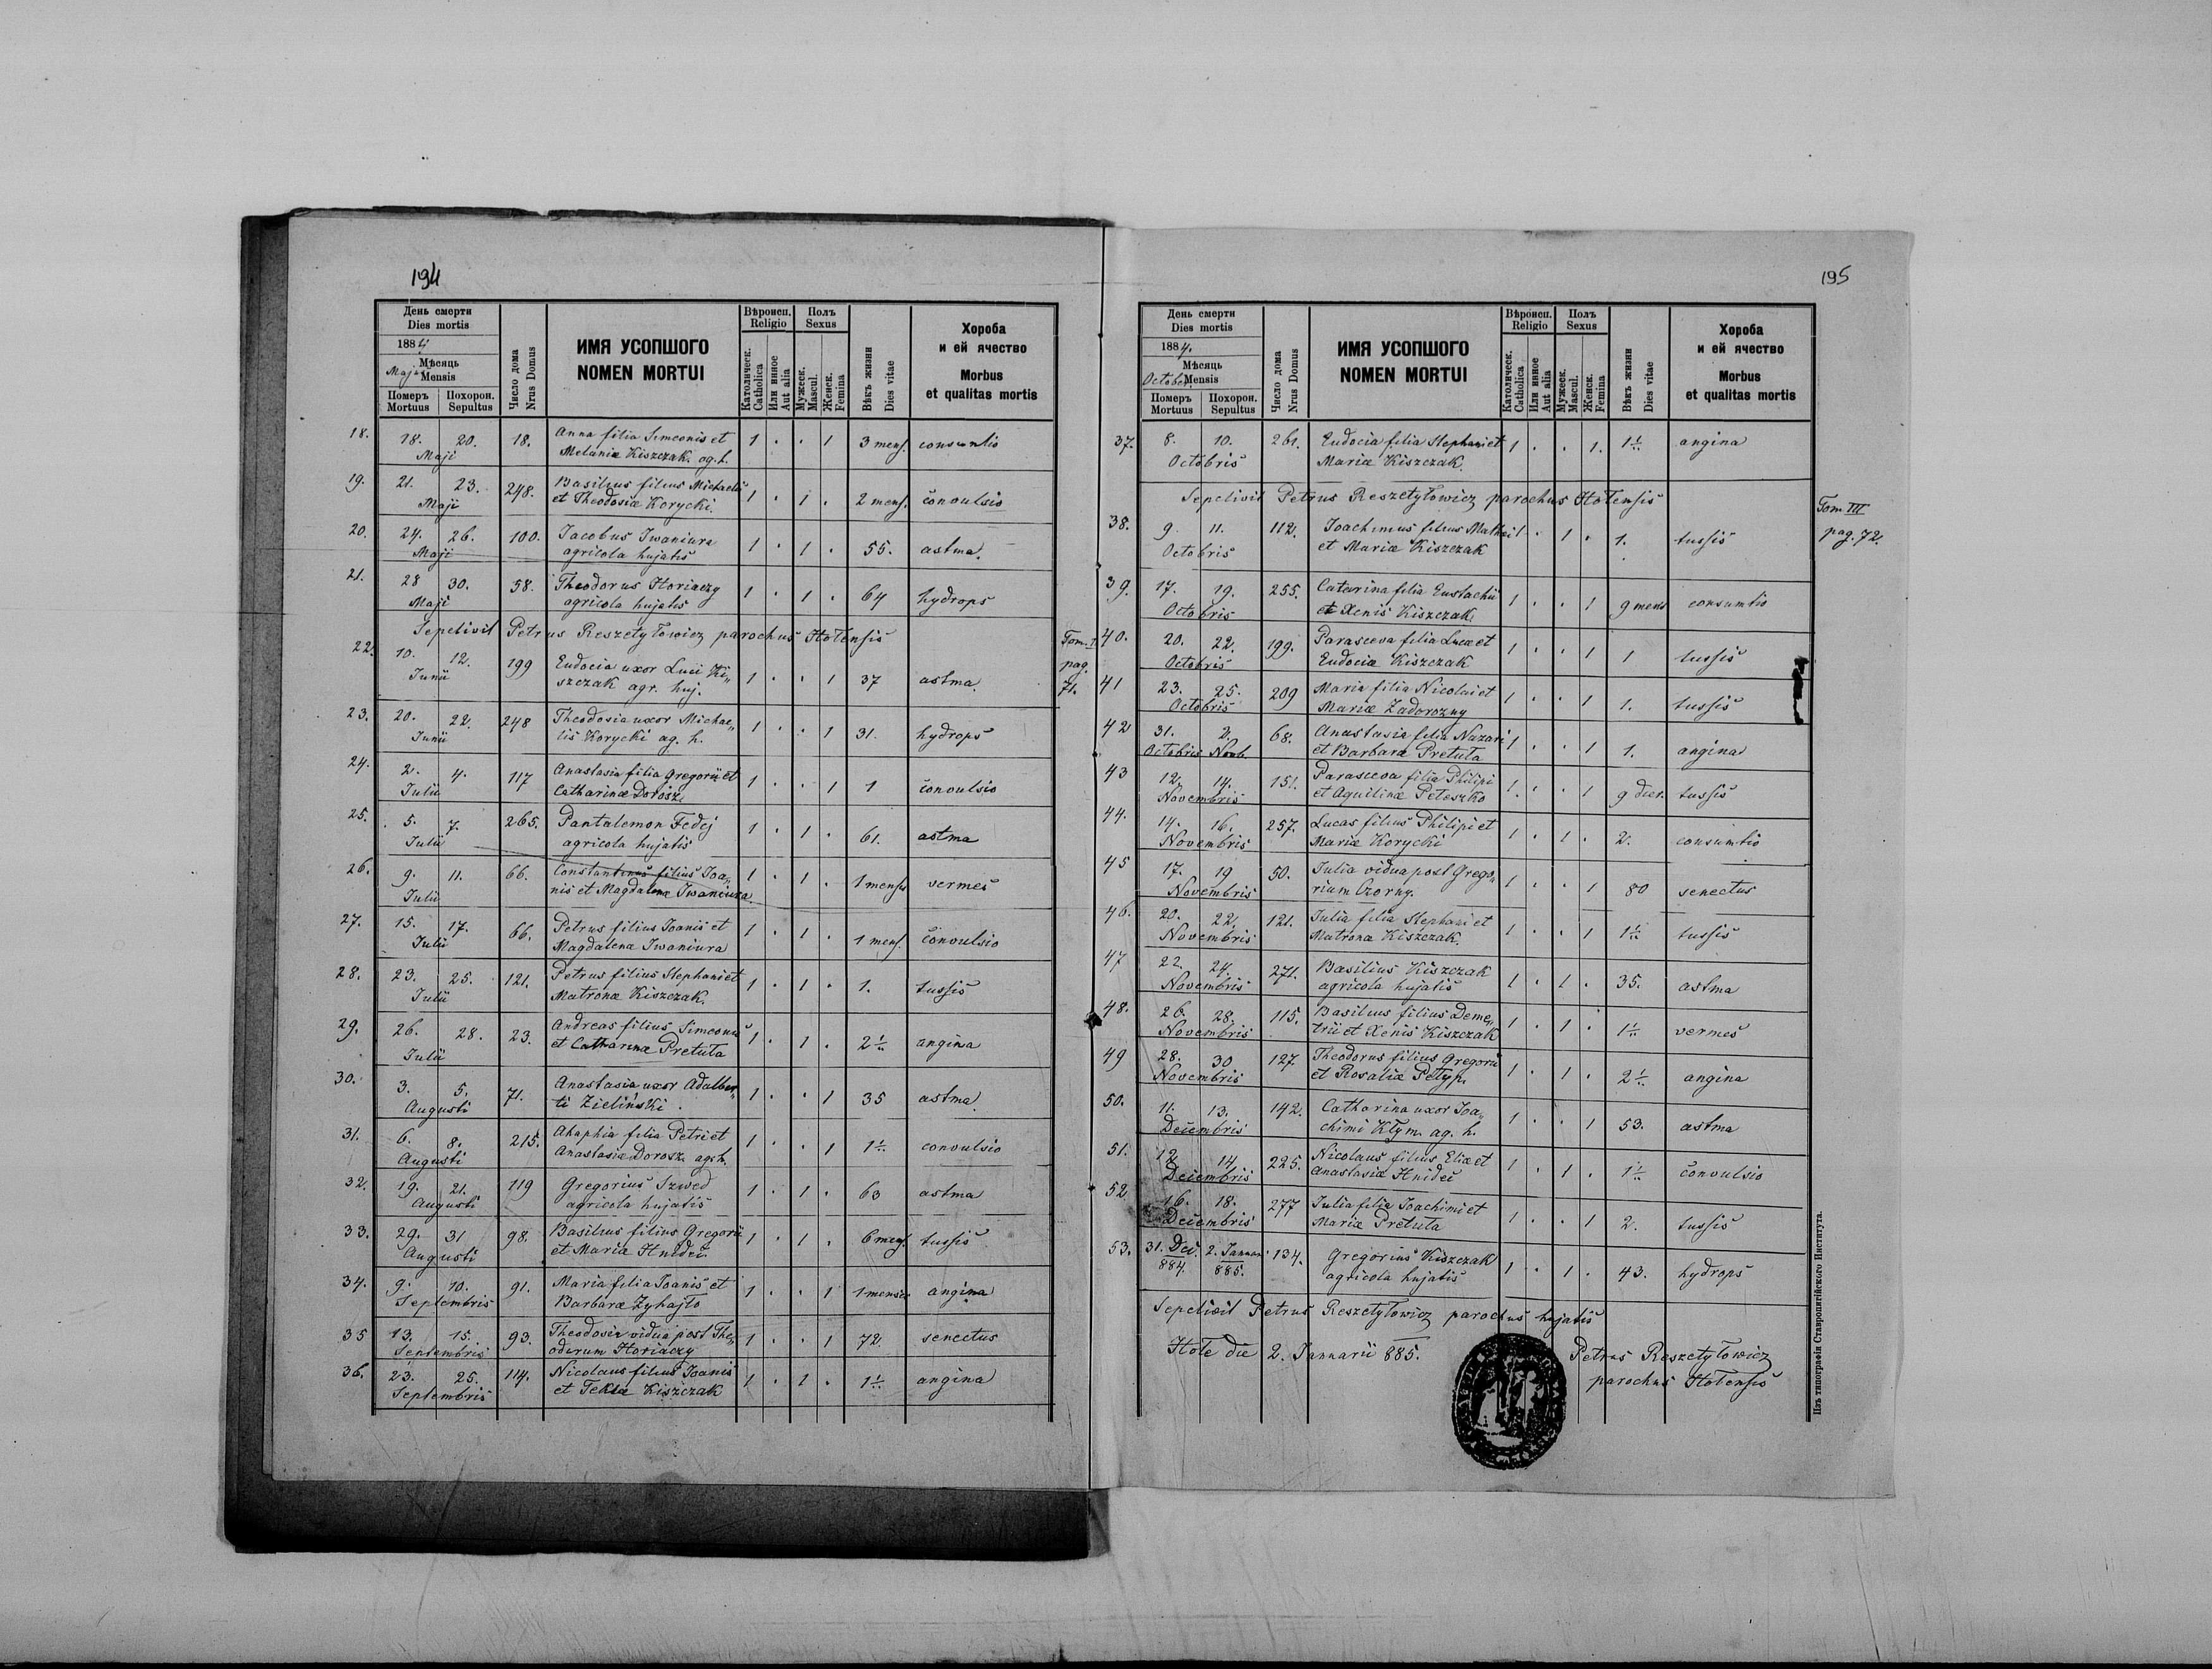 194
День смерти
Dies mortis
1884
Мѣсяць
Maji Mensis
Померъ Mortuus
Похорон. Sepultus
Число дома
Nrus Domus
ИМЯ УСОПШОГО
NOMEN MORTUI
Вѣроисп.
Religio
Католическ.
Catholica
Или инное
Aut alia
Полъ
Sexus
Мужеск.
Mascul.
Женск.
Femina
Вѣкъ жизни
Dies vitae
Хороба
и ей ячество
Morbus
et qualitas mortis
18. 18. 20. 18. Anna filia Simeonis et 1 . . 1 3 mens. consumtio
Maji Melaniæ Kiszczak. ag. h.
19. 21. 23. 248. Basilius filius Michaelis 1 . 1 . 2 mens. convulsio
Maji et Theodosiæ Korycki.
20. 24. 26. 100. Jacobus Iwaniura 1 . 1 . 55. astma.
Maji agricola hujatis
21. 28 30. 58. Theodorus Horiaczy 1 . 1 . 64 hydrops
Maji agricola hujatis
Sepelivit Petrus Reszetyłowicz parochus Hotensis
22. 10. 12. 199 Eudocia uxor Luci Ki„ 1 . . 1 37 astma.
Junii szczak agr. huj.
Tom. I
pag.
71.
23. 20. 22. 248 Theodosia uxor Michae„ 1 . . 1 31. hydrops
Junii lis Korycki ag. h.
24. 2. 4. 117 Anastasia filia Gregorii et 1 . . 1 1 convulsio
Julii Catharinæ Dorosz.
25. 5. 7. 265. Pantalemon Fedej 1 . 1 . 61. astma
Julii agricola hujatis
26. 9. 11. 66. Constantinus filius Joa„ 1 . 1 . 1 mensis vermes
Julii nis et Magdalena Iwaniura.
27. 15. 17. 66. Petrus filius Joanis et 1 . 1 . 1 mens. convulsio
Julii Magdalena Iwaniura
28. 23. 25. 121. Petrus filius Stephani et 1 . 1 . 1. tussis
Julii Matronæ Kiszczak.
29. 26. 28. 23. Andreas filius Simeonis 1 . 1 . 2½ angina
Julii et Catharinæ Pretuta
30. 3. 5. 71. Anastasia uxor Adalber„ 1 . . 1 35 astma.
Augusti ti Zieliński.
31. 6. 8. 215. Ahaphia filia Petri et 1 . . 1 1½ convulsio
Augusti Anastasiæ Dorosz. agr. h.
32. 19. 21. 119 Gregorius Szwed 1 . 1 . 63 astma
Augusti agricola hujatis
33. 29. 31 98. Basilius filius Gregorii 1 . 1 . 6 mens. tussis
Augusti et Maria Hnideć.
34. 9. 10. 91. Maria filia Joanis et 1 . . 1 1 mensis angina
Septembris Barbaræ Zyhajło
35 13. 15. 93. Theodosia vidua post The„ 1 . . 1 72. senectus
Septembris odorum Horiaczy
36. 23. 25. 114. Nicolaus filius Joanis 1 . 1 . 1½ angina
Septembris et Tekla Kiszczak
195
День смерти
Dies mortis
1884.
Мѣсяць
October. Mensis
Померъ Mortuus
Похорон. Sepultus
Число дома
Nrus Domus
ИМЯ УСОПШОГО
NOMEN MORTUI
Вѣроисп.
Religio
Католическ.
Catholica
Или инное
Aut alia
Полъ
Sexus
Мужеск.
Mascul.
Женск.
Femina
Вѣкъ жизни
Dies vitae
Хороба
и ей ячество
Morbus
et qualitas mortis
37. 8. 10. 261. Eudocia filia Stephani et 1 . . 1. 1½ angina
Octobris Mariæ Kiszczak.
Sepelivit Petrus Reszetyłowicz parochus Hotensis
Tom III
pag. 72.
38. 9. 11. 112. Joachimus filius Mathei 1 . 1 . 1. tussis
Octobris et Mariæ Kiszczak
39. 17. 19. 255. Catarina filia Eustachii 1 . . 1 9 mens consumtio
Octobris et Xenis Kiszczak.
40. 20. 22. 199. Parasceva filia Lucæ et 1 . . 1 1 tussis
Octobris Eudociæ Kiszczak
41 23. 25. 209 Maria filia Nicolai et 1 . . 1 1. tussis
Octobris Mariæ Zadorozny
42 31. 2. 68. Anastasia filia Nazari 1 . . 1 1. angina
Octobris Novb. et Barbaræ Pretuta
43 12. 14. 151. Parasceva filia Philipi 1. . . 1 9 dier. tussis
Novembris et Aquilinæ Peteszko
44. 14. 16. 257. Lucas filius Philipi et 1 . 1 . 2. consumtio
Novembris Mariæ Korycki
45 17. 19 50. Julia vidua post Grego„ 1 . . 1 80 senectus
Novembris rium Czorny.
46. 20. 22. 121. Julia filia Stephani et 1 . . 1 1½ tussis
Novembris Matronæ Kiszczak.
47 22. 24. 271. Basilius Kiszczak 1 . 1 . 35. astma
Novembris agricola hujatis
48. 26. 28. 115. Basilius filius Deme„ 1 . 1 . 1½ vermes
Novembris trii et Xenis Kiszczak
49 28. 30 127 Theodorus filius Gregorii 1 . 1 . 2½ angina
Novembris et Rosaliæ Petyp.
50. 11. 13. 142. Catharina uxor Joa„ 1 . . 1 53. astma
Decembris chimi Kłym. ag. h.
51. 12 14 225. Nicolaus filius Eliæ et 1 . 1 . 1½ convulsio
Decembris Anastasiæ Hnideć
52 16. 18. 277 Julia filia Joachimi et 1 . . 1 2. tussis
Decembris Mariæ Pretuta
53. 31. Dec. 2. Januar 134. Gregorius Kiszczak 1 . 1 . 43. hydrops
884. 885. agricola hujatis
Sepelivit Petrus Reszetyłowicz parochus hujatis
Hote die 2. Januarii 885. Petrus Reszetyłowicz
parochus Hotensis
Изъ типографіи Ставропигійского Института.